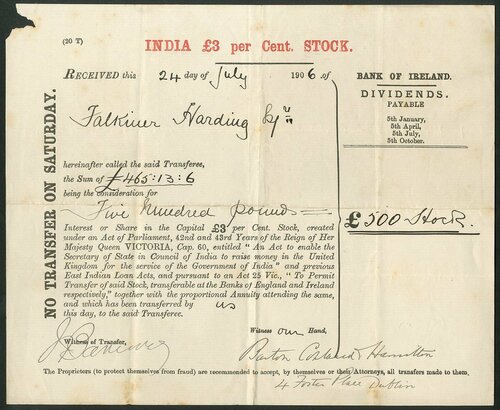 (20 T)
INDIA £3 per Cent. STOCK.
NO TRANSFER ON SATURDAY.
RECEIVED this 24 day of July 1906 of
Falkiner Harding Esqr
hereinafter called the said Transferee,
the Sum of £465:13:6
being the consideration for
Five Hundred pounds
Interest or Share in the Capital £3 per Cent. Stock, created
under an Act of Parliament, 42nd and 43rd Years of the Reign of Her
Majesty Queen VICTORIA, Cap. 60, entitled "An Act to enable the
Secretary of State in Council of India to raise money in the United
Kingdom for the service of the Government of India" and previous
East Indian Loan Acts, and pursuant to an Act 25 Vic., "To Permit
Transfer of said Stock, transferable at the Banks of England and Ireland
respectively," together with the proportional Annuity attending the same,
and which has been transferred by us
this day, to the said Transferee.
BANK OF IRELAND.
DIVIDENDS.
PAYABLE
5th January,
5th April,
5th July,
5th October.
£500 Stock.
Witness our Hand,
Witness of Transfer,
Barton Hamilton
4 Foster Place Dublin
The Proprietors (to protect themselves from fraud) are recommended to accept, by themselves or their Attorneys, all transfers made to them.